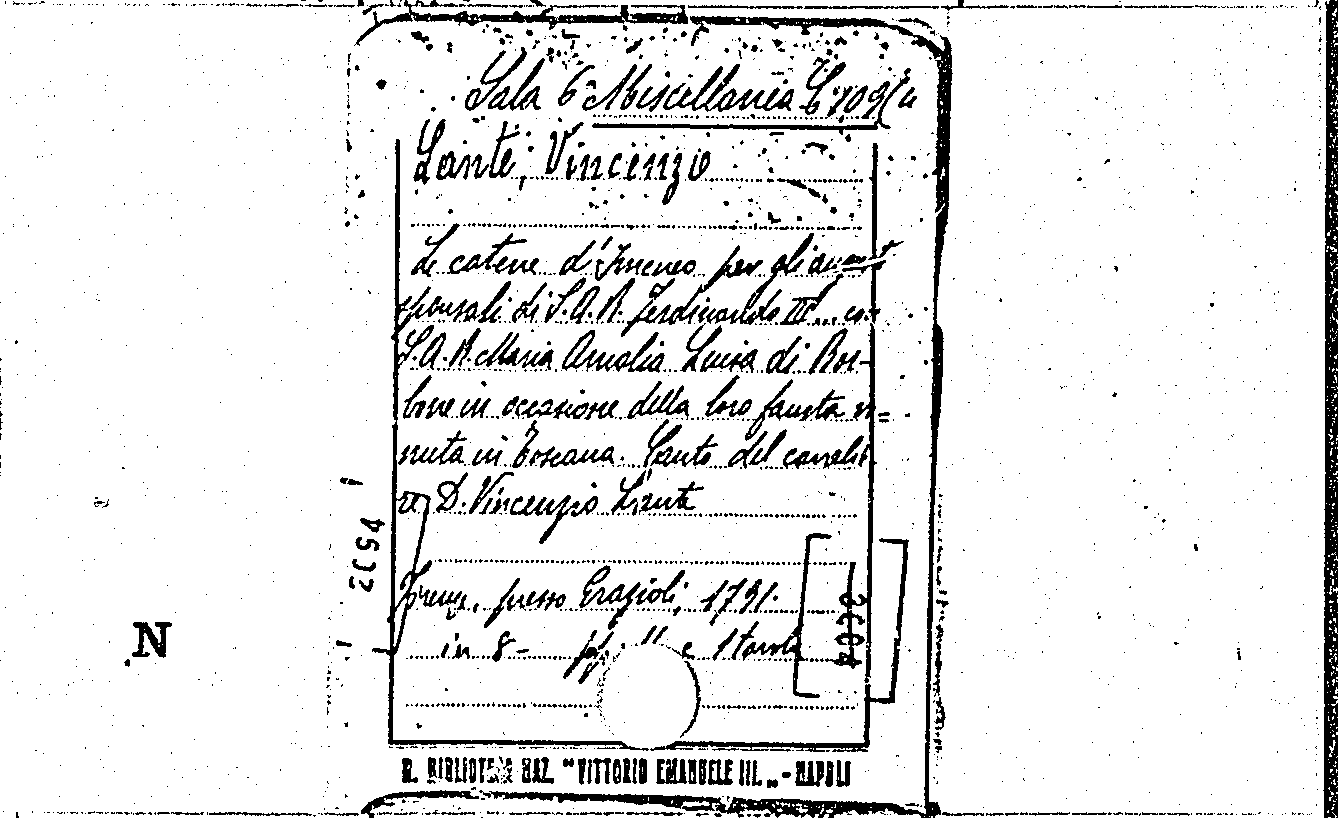 Sala 6 Miscellanea
Lante, Vincenzo
Le catene d'Imeneo per gli
sponsali di S.A.R. Ferdinando III... con
S.A.R. Maria Amalia Luisa di Bor-
bone in occasione della loro fausta ve=
nuta in Toscana. Canto del cavalie
re D. Vincenzio Lante
Firenze, presso Grazioli, 1791.
in 8- pp. 11 e 1 tavola
N
R. BIBLIOTECA NAZ. "VITTORIO EMANUELE III." - NAPOLI